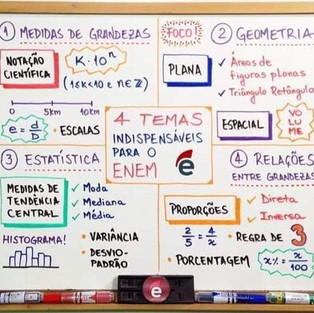 1 MEDIDAS DE GRANDEZAS
NOTAÇÃO CIENTÍFICA
K·10ⁿ
(1≤K<10 e n∈ℤ)
5km 10km
e = d/D
• ESCALAS
FOCO
2 GEOMETRIA
PLANA
✓ Áreas de figuras planas
✓ Triângulo Retângulo
ESPACIAL
VO
LU
ME
4 TEMAS
INDISPENSÁVEIS
PARA O
ENEM e
3 ESTATÍSTICA
MEDIDAS DE
TENDÊNCIA
CENTRAL
✓ Moda
✓ Mediana
✓ Média
HISTOGRAMA!
• VARIÂNCIA
• DESVIO-
PADRÃO
4 RELAÇÕES
ENTRE GRANDEZAS
PROPORÇÕES
✓ Direta
✓ Inversa
2/5 = 4/x
• REGRA DE 3
• PORCENTAGEM
x% = x/100
e